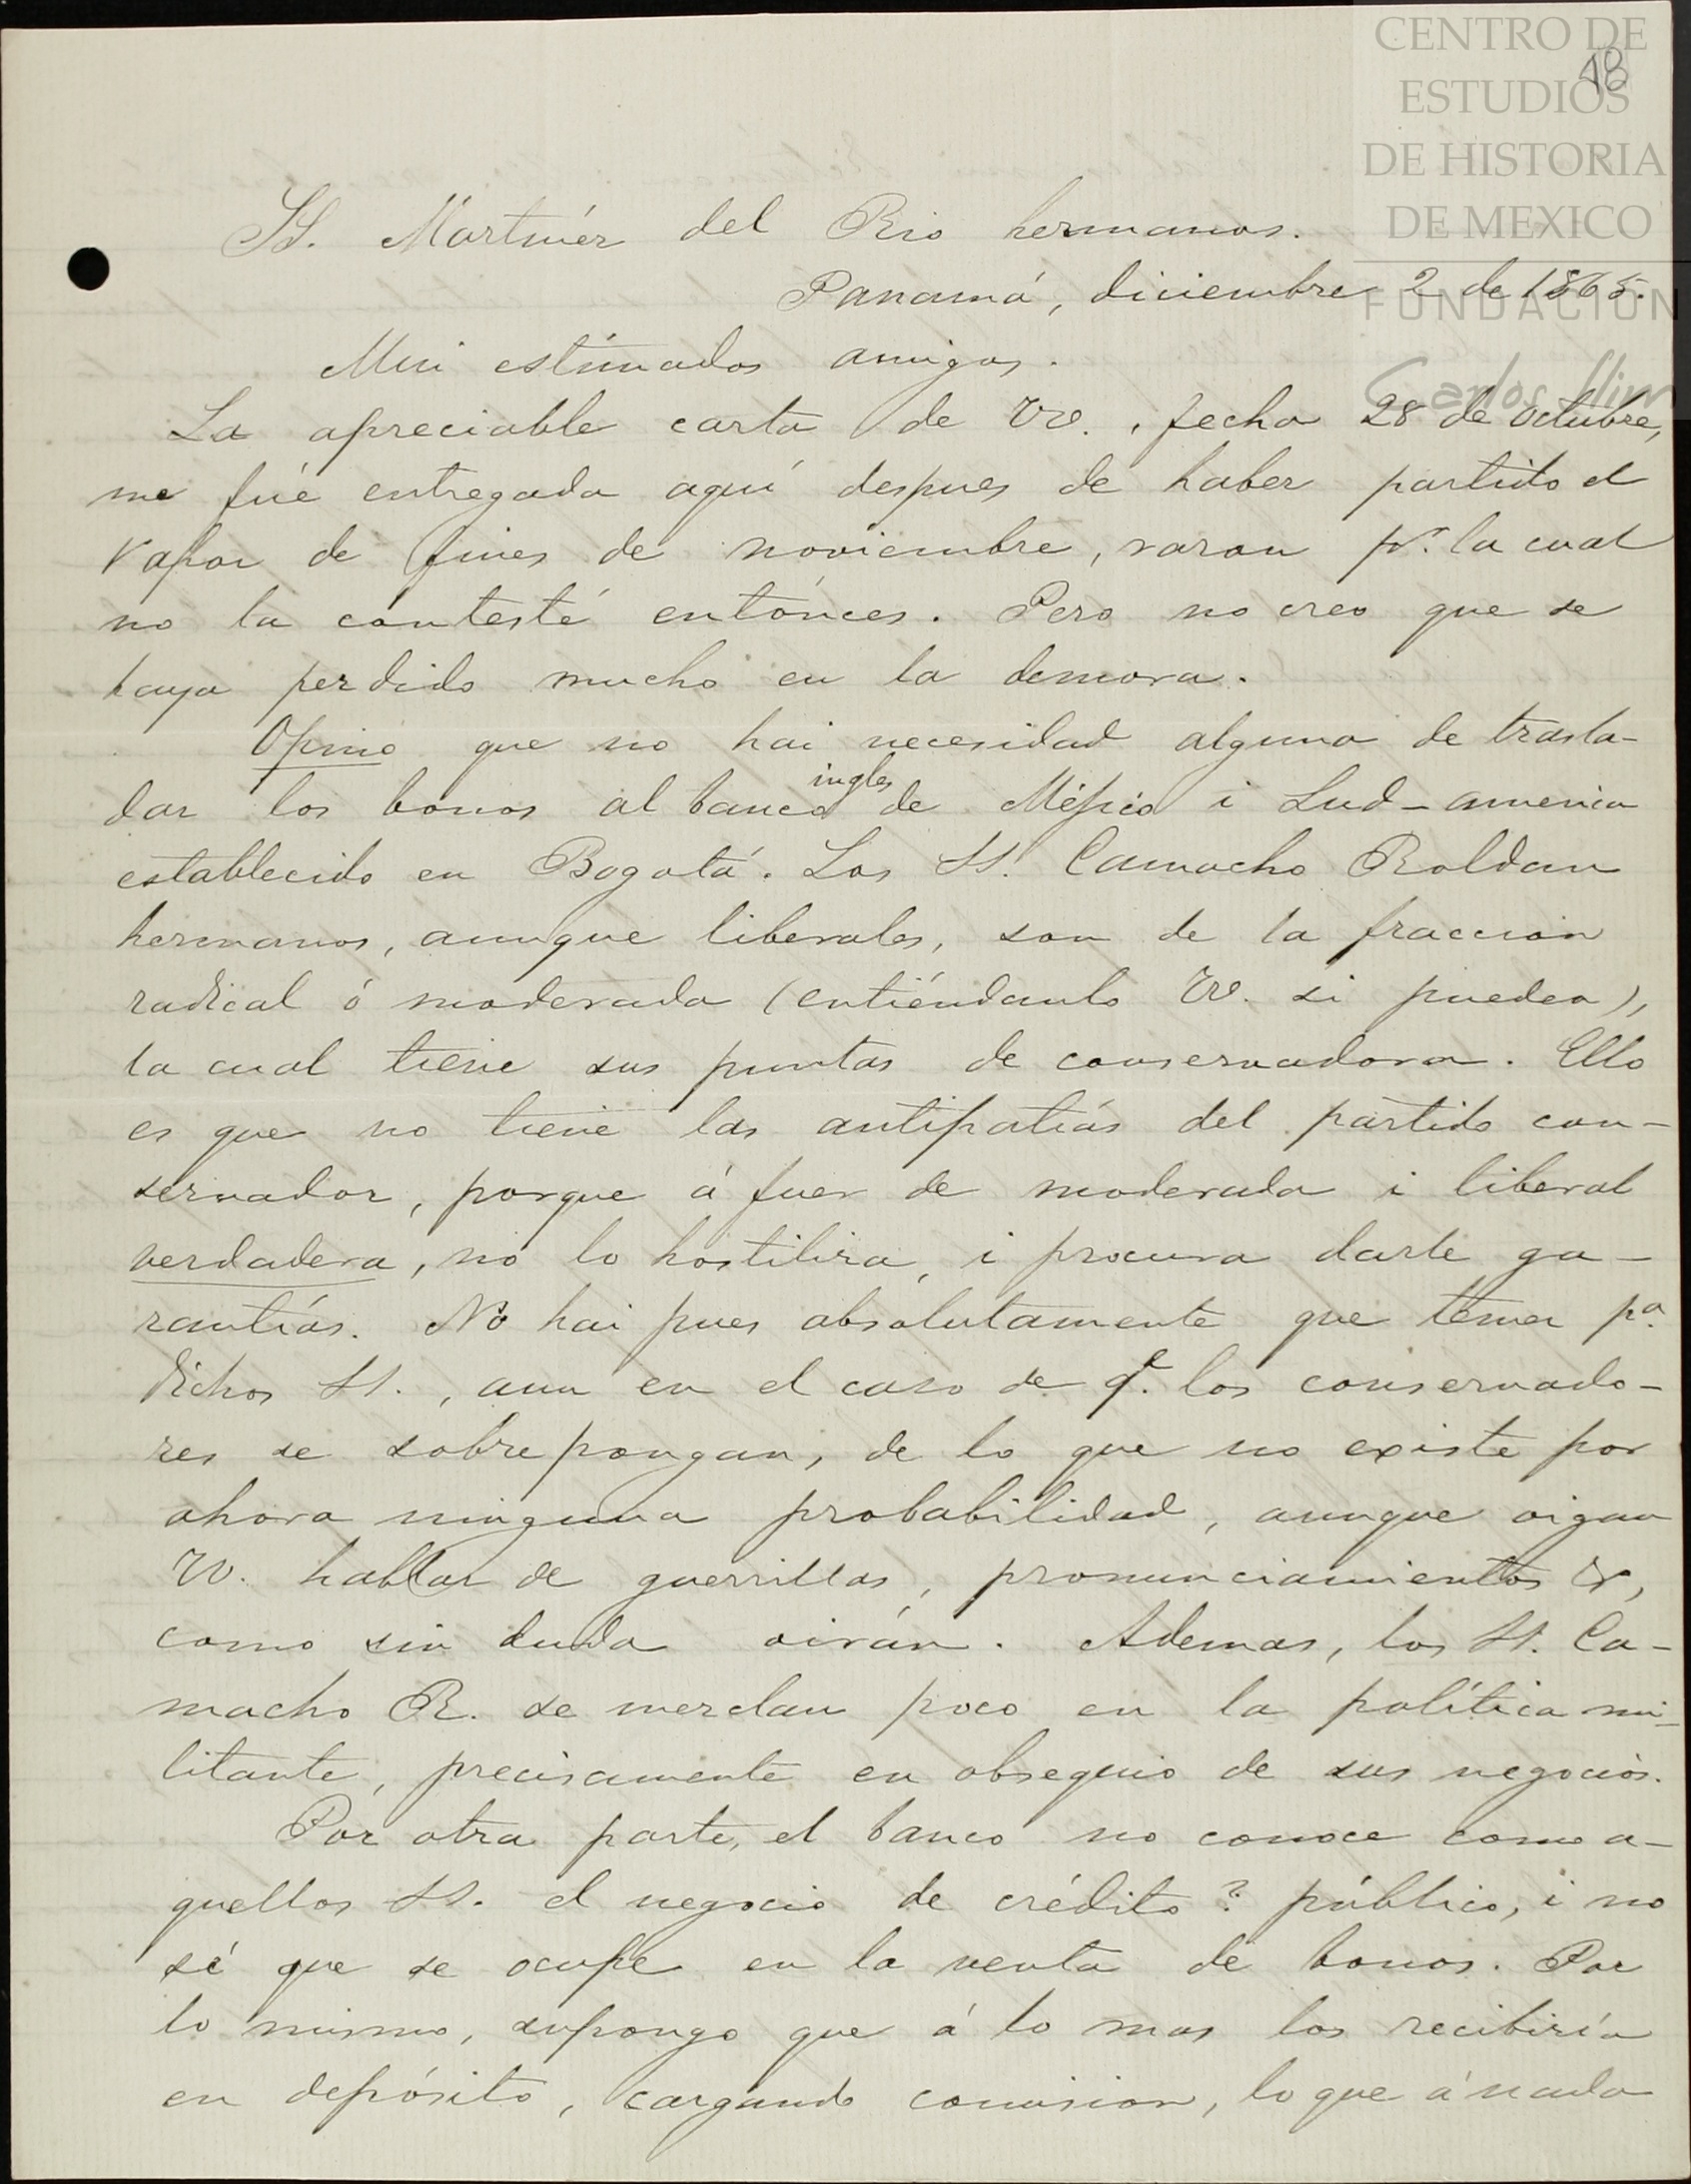 CENTRO DE
ESTUDIOS
DE HISTORIA
DE MEXICO
FUNDACIÓN
Carlos Slim
48
SS. Martínez del Rio hermanos.
Panamá, diciembre 2 de 1865.
Mui estimados amigos.
La apreciable carta de VV., fecha 28 de octubre,
me fué entregada aquí despues de haber partido el
vapor de fines de noviembre, razon pr. la cual
no la contesté entónces. Pero no creo que se
haya perdido mucho en la demora.
Opino que no hai necesidad alguna de trasla-
dar los bonos al banco ingles de Méjico i Sud-america
establecido en Bogotá. Los SS. Camacho Roldan
hermanos, aunque liberales, son de la fraccion
radical ó moderada (entiéndanlo VV. si pueden),
la cual tiene sus puntas de conservadora. Ello
es que no tiene las antipatías del partido con-
servador, porque á fuer de moderada i liberal
verdadera, no lo hostiliza, i procura darle ga-
rantías. No hai pues absolutamente que temer pa.
dichos SS., aun en el caso de qe. los conservado-
res se sobrepongan, de lo que no existe por
ahora ninguna probabilidad, aunque oigan
VV. hablar de guerrillas, pronunciamientos &,
como sin duda oirán. Ademas, los SS. Ca-
macho R. se mezclan poco en la política mi-
litante, precisamente en obsequio de sus negocios.
Por otra parte, el banco no conoce como a-
quellos SS. el negocio de crédito? público, i no
sé que se ocupe en la venta de bonos. Por
lo mismo, supongo que á lo mas los recibiría
en depósito, cargando comision, lo que á nada